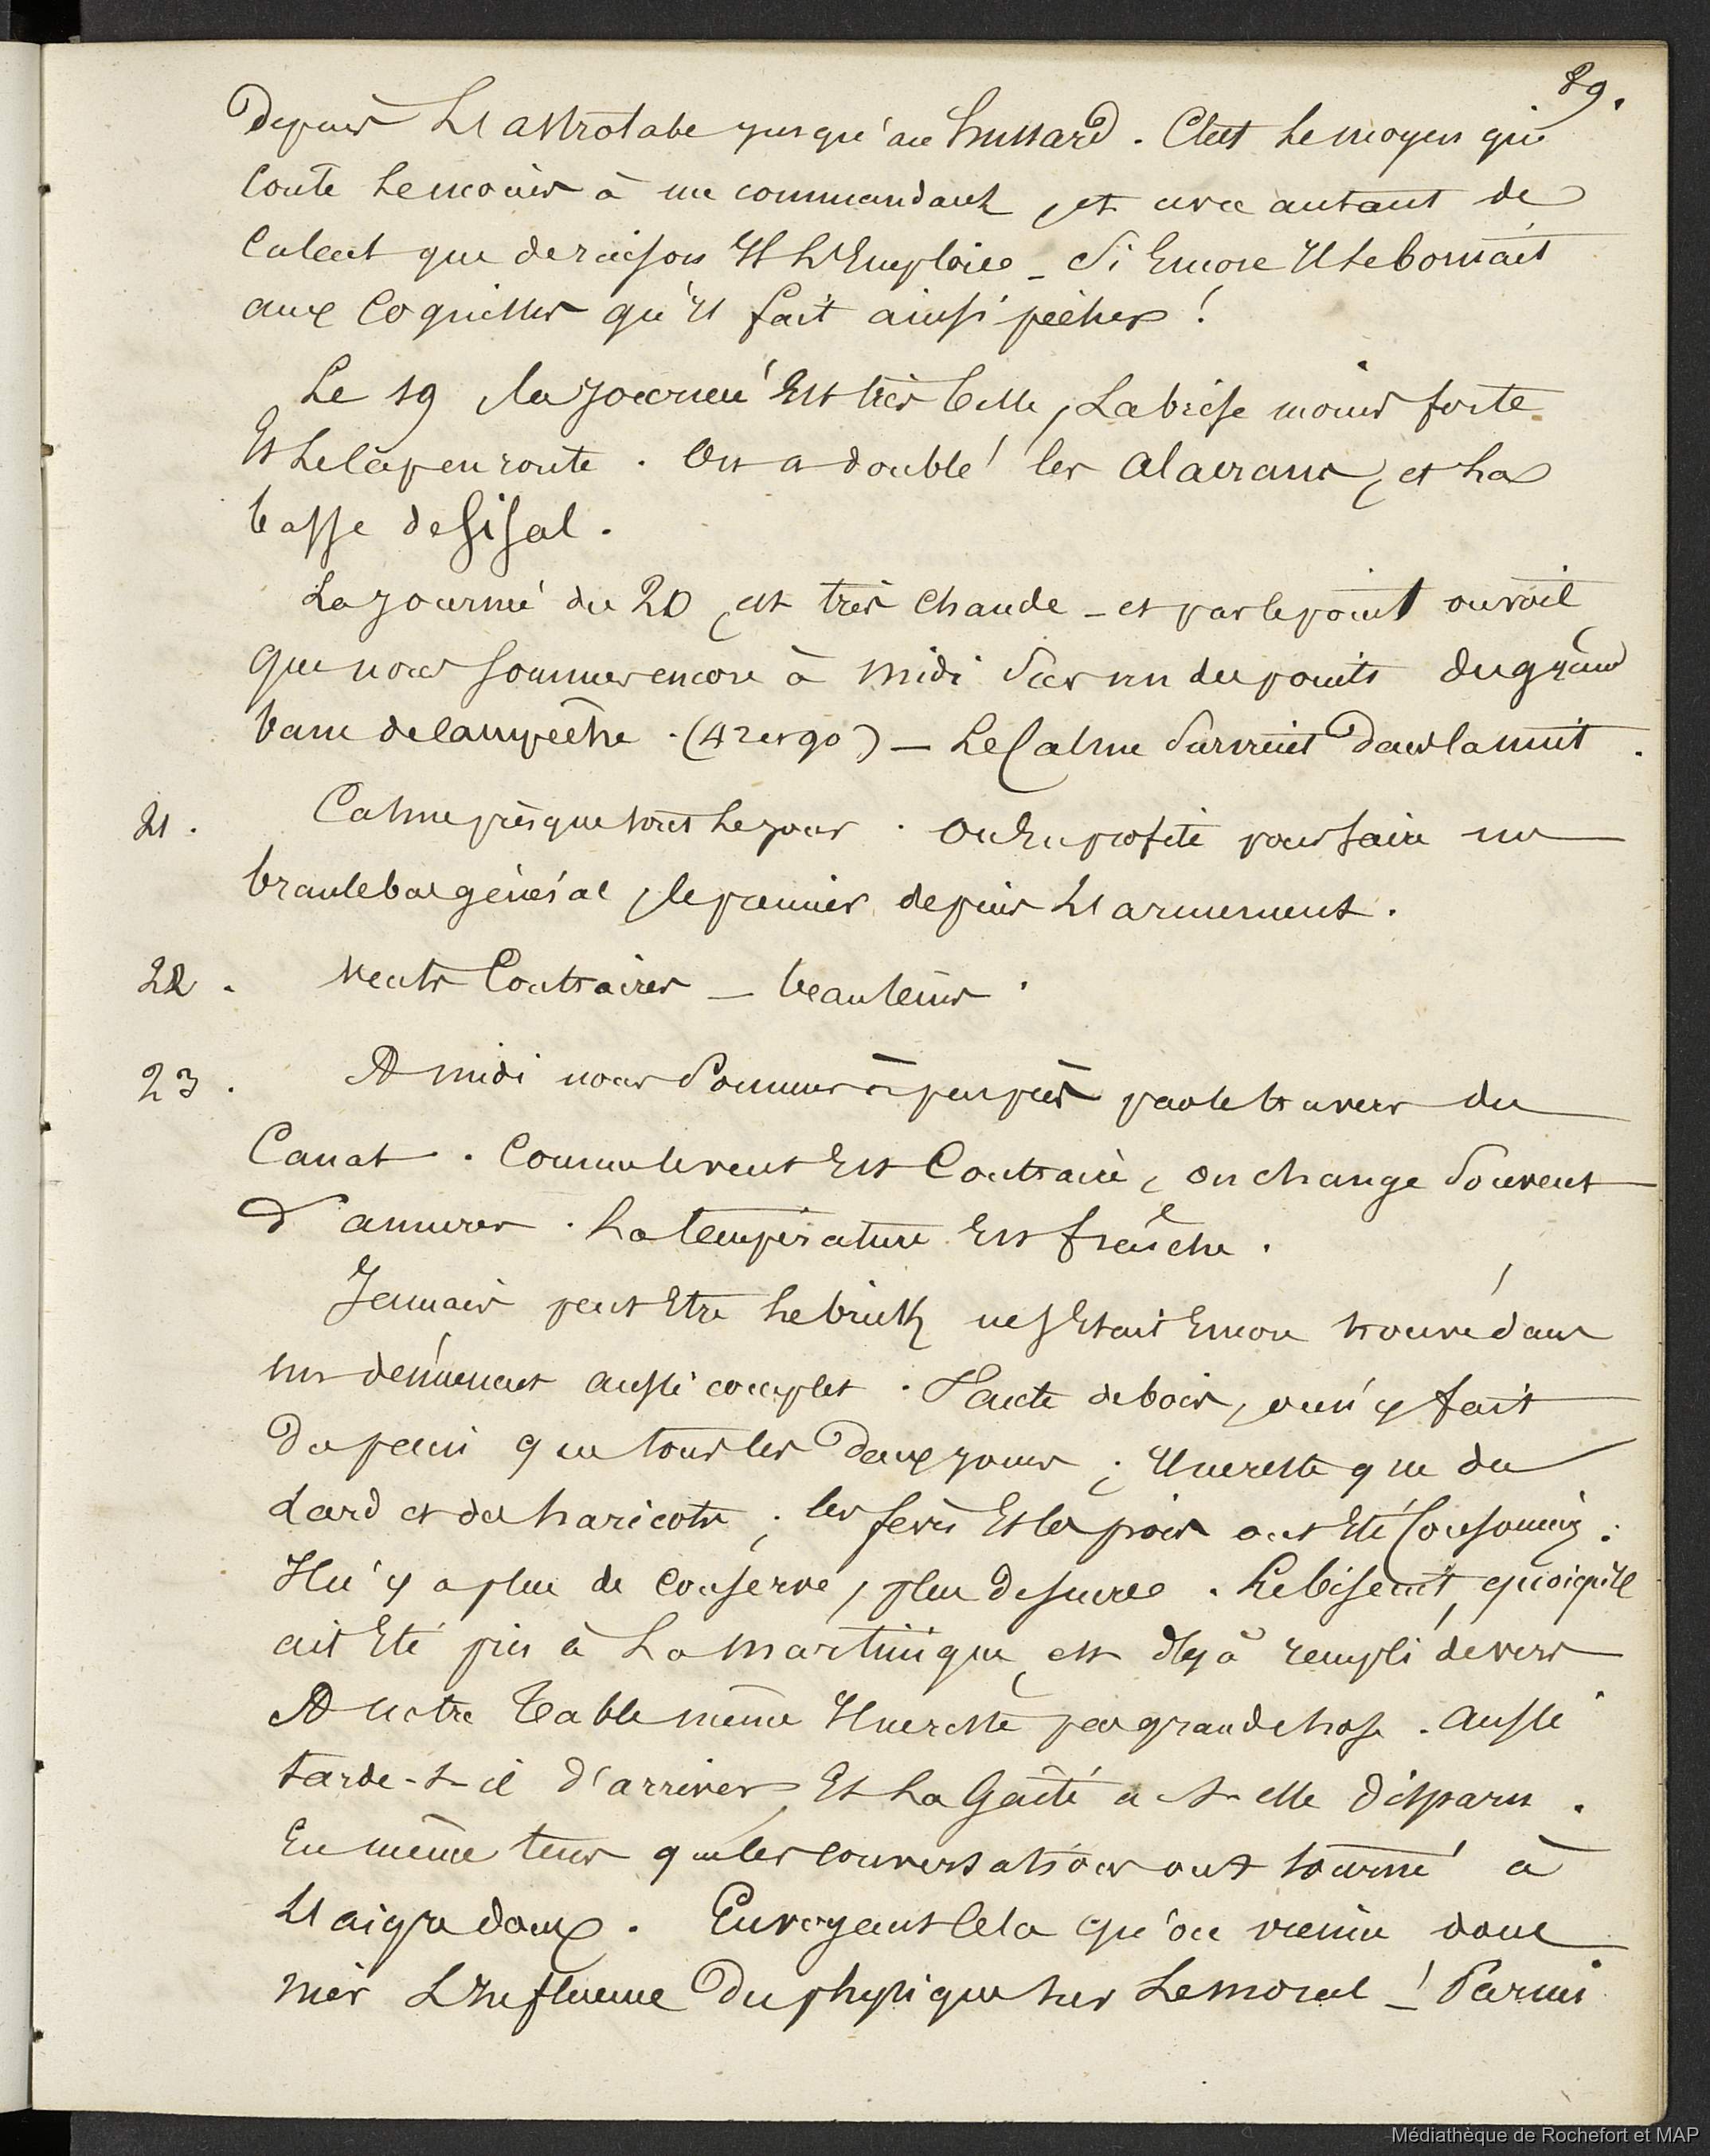 89.
depuis L'astrolabe jusqu'au hussard. C'est le moyen qui
coute le moins à un commandant, et avec autant de
talent que de raison Il L'Emploie _ Si Encore Il se bornait
aux Coquilles qu'il fait ainsi pêcher !
Le 19, la journée Est très belle, La brise moins forte
Et le Cap en route. On a doublé les alacrans, et La
basse de Sisal.
La journée du 20, est très chaude _ et par le point on voit
que nous sommes encore à midi Sur un des points du grand
banc de Campêche. (42 et 90) _ Le Calme Survient Dans la nuit.
21. Calme presque tout Le jour. On En profite pour faire un
branlebas général, le premier depuis L'armement.
22. Vents Contraires _ beau tems.
23. A midi nous Sommes à peu près par le travers du
Canal. Comme le vent Est Contraire, on change Souvent
d'amures. La température Est fraîche.
Jamais peut Etre Le brick ne s'Etait Encore trouvé dans
un dénument aussi complet. Faute de bois, on n'y fait
du pain que tous les Deux jours ; Il ne reste que du
Lard et des haricots ; les fèves Et les pois ont Eté Consommés.
Il n'y a plus de Conserve, plus de sucre. Le biscuit, quoiqu'il
ait Eté pris à La martinique, est déjà rempli de vers
A notre table même Il ne reste pas grand chose. Aussi
tarde-t-il d'arriver, Et La Gaîté a t-elle disparu.
En même tems que les conversations ont tourné à
L'aigre doux. En voyant Cela qu'on vienne donc
nier L'Influence Du physique sur Le moral _! Parmi
Médiathèque de Rochefort et MAP